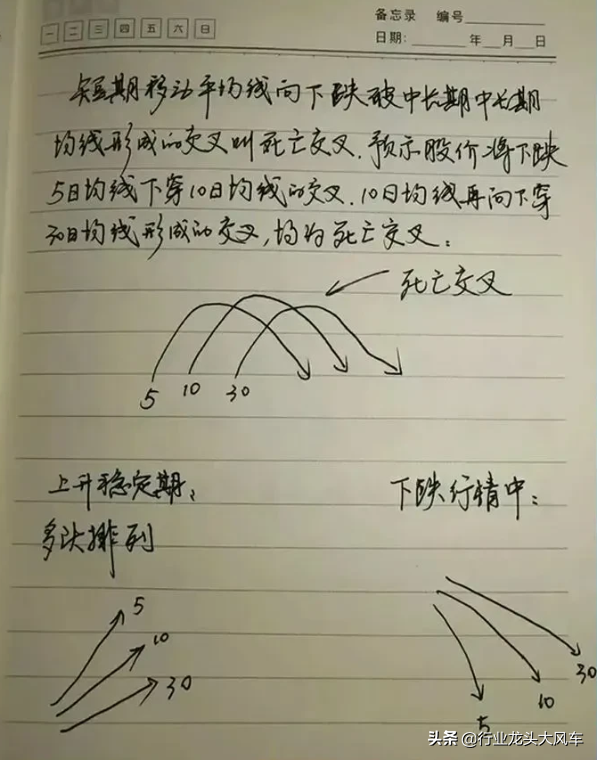 备忘录 编号
一 二 三 四 五 六 日
日期: 年 月 日
短期移动平均线向下跌破中长期中长期
均线形成的交叉叫死亡交叉.预示股价将下跌
5日均线下穿10日均线的交叉.10日均线再向下穿
30日均线形成的交叉,均为死亡交叉:
死亡交叉
5 10 30
上升稳定期: 下跌行情中:
多头排列
5
10
30 30
10
5
头条 @行业龙头大风车